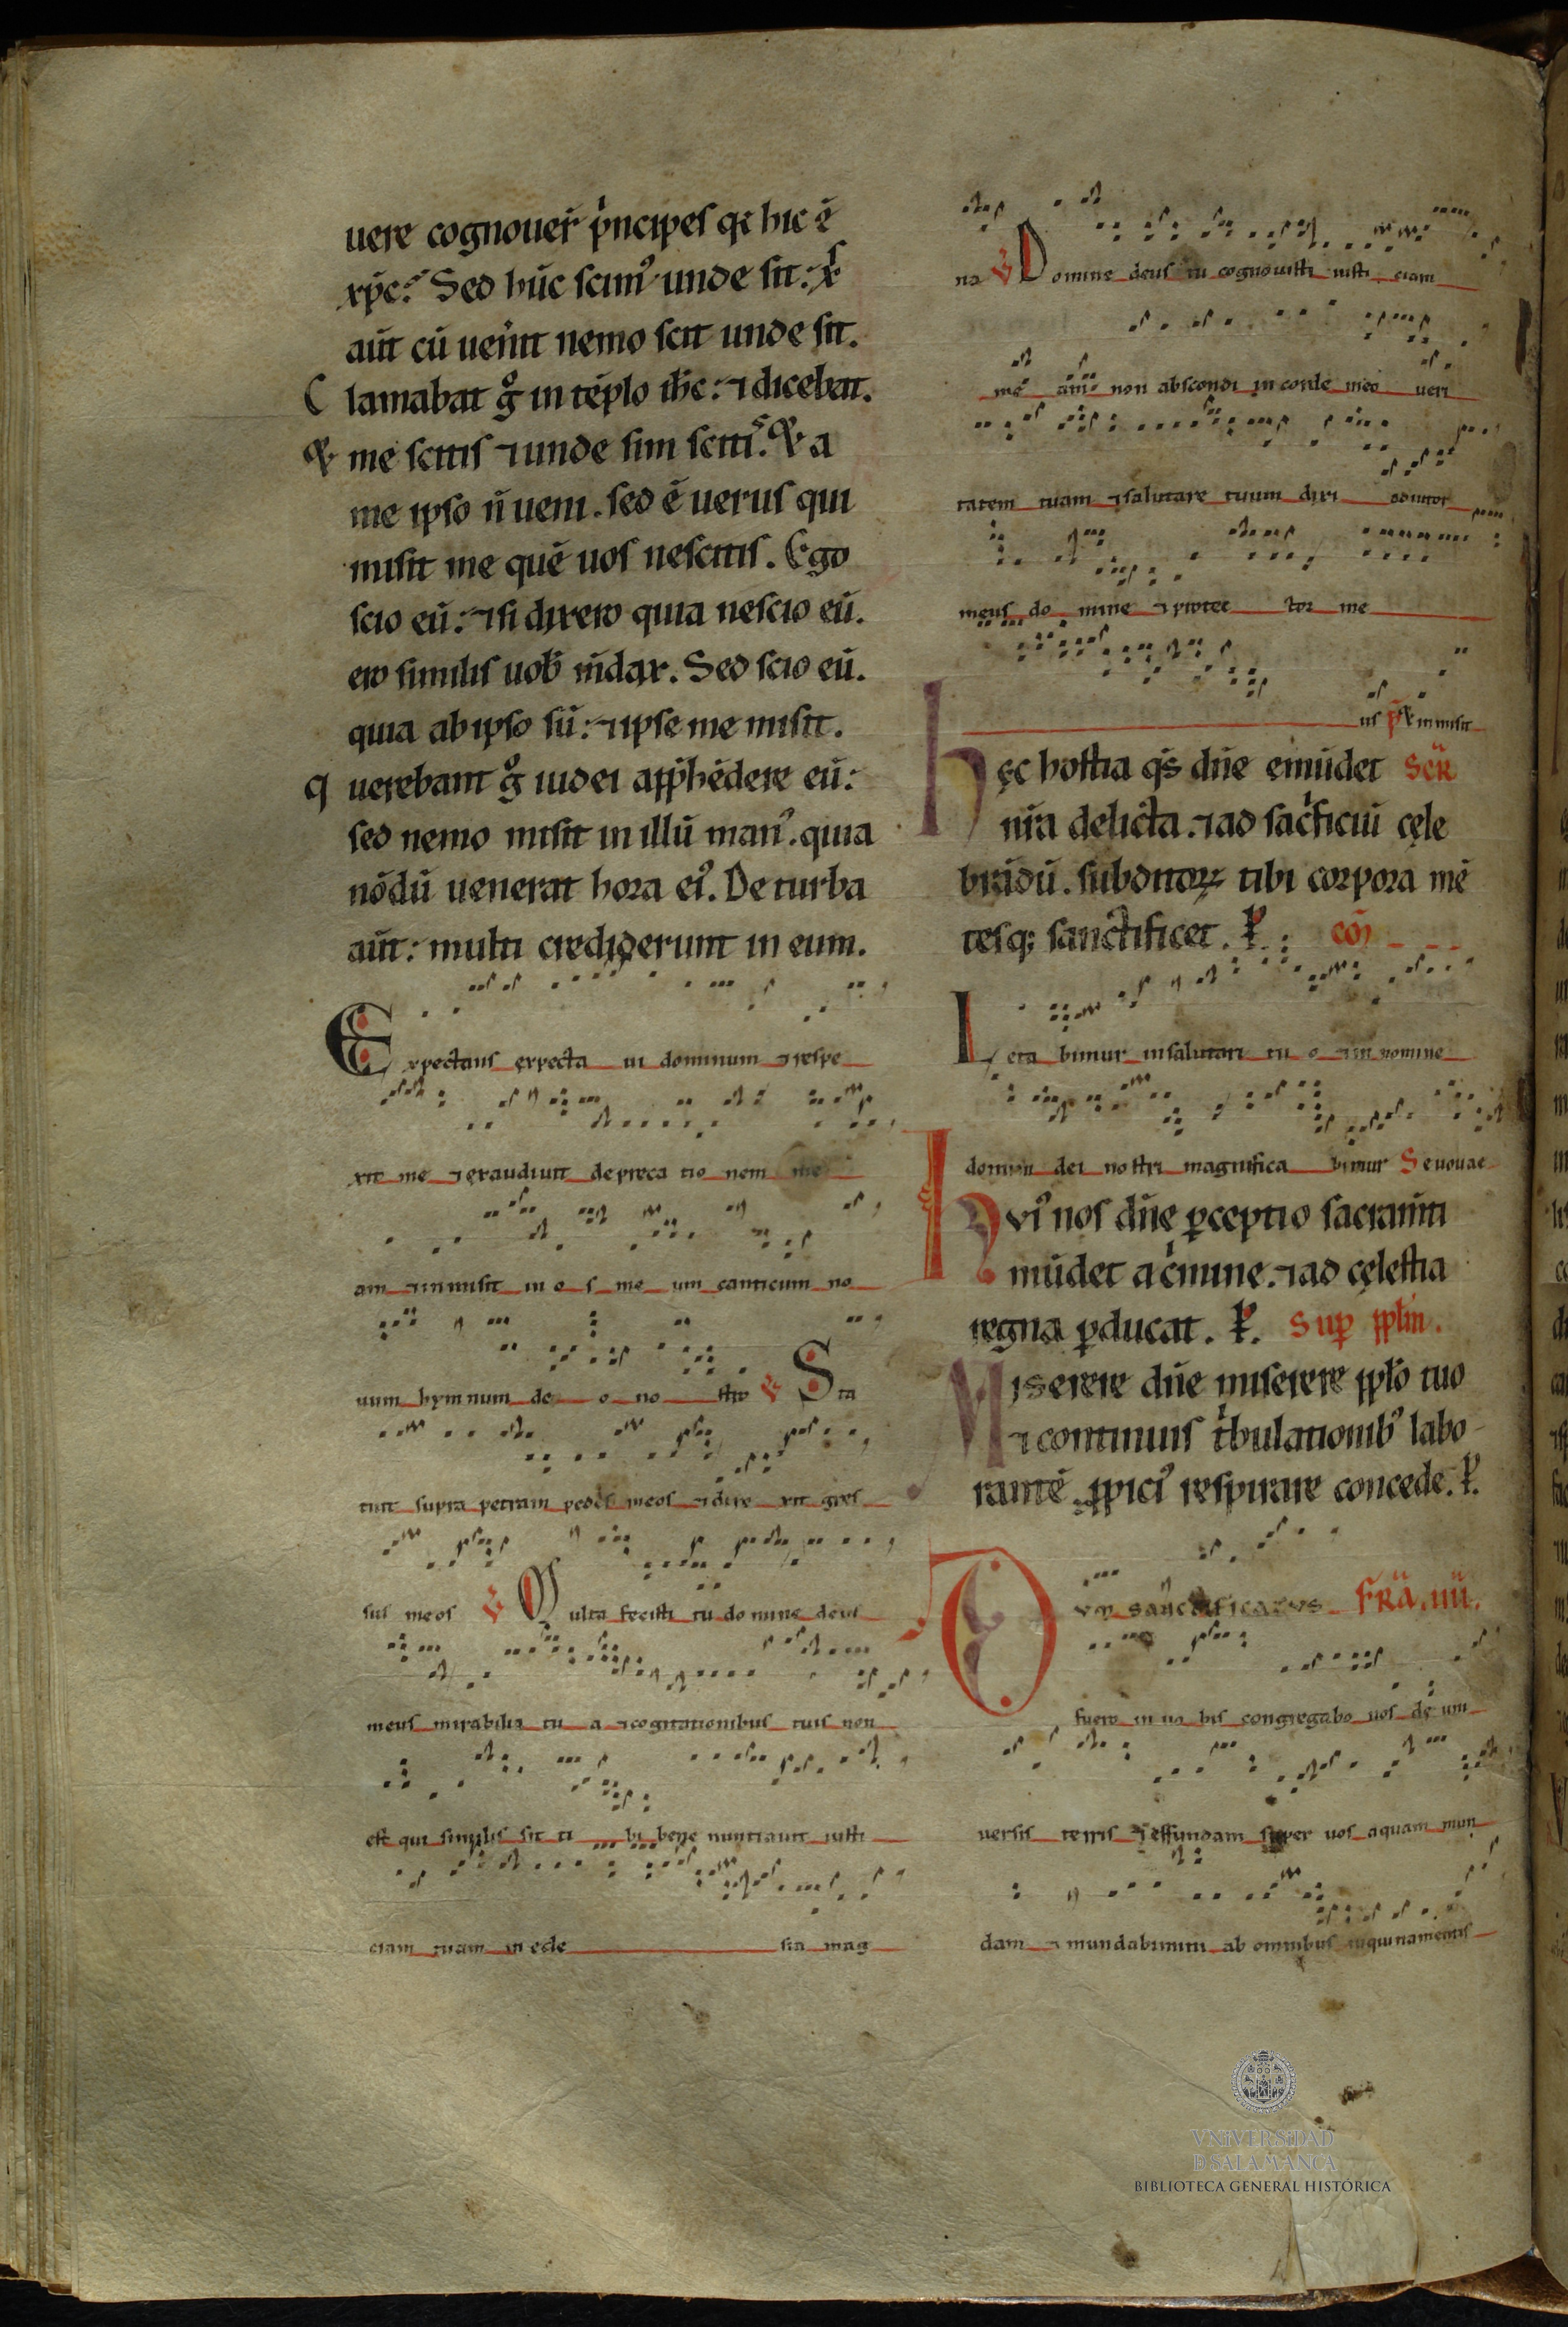 uere cognouer̄ pͥncipes qꝛ hic ē
xp̄c. Sed hūc scimꝰ unde sit: xp̄s
aūt cū uen̄it nemo scit unde sit.
Clamabat gͦ in tēplo ih̄c: ⁊ dicebat.
Et me scitis ⁊ unde sim scitis. Et a
me ipso n̄ ueni. sed ē uerus qui
misit me quē uos nescitis. Ego
scio eū: ⁊ si dixero quia nescio eū.
ero similis uob̄ m̄dax. Sed scio eū.
quia ab ipso sū: ⁊ ipse me misit.
querebant gͦ iudei app̄hēdere eū:
sed nemo misit in illū manꝰ. quia
nōdū uenerat hora eiꝰ. De turba
aūt: multi crediderunt in eum.
Expectans expecta ui dominum ⁊ respe
xit me ⁊ exaudiuit depreca tio nem me
am ⁊ inmisit in o s me um canticum no
uum hymnum de o no stro ℣ Sta
tuit supra petram pedes meos ⁊ dire xit gres
sus meos ℣ Multa fecisti tu domine deus
meus mirabilia tu a ⁊ cogitationibus tuis non
est qui similis sit ti bi bene nuntiauit iusti
ciam tuam in ecle sia mag
na ℣ Domine deus tu cognouisti iusti ciam
me am non abscondi in corde meo ueri
tatem tuam ⁊ salutare tuum dixi adiutor
meus do mine ⁊ protec tor me
us p̄ Et inmisit
Hęc hostia qs̄ dn̄e emūdet Scr̄
nr̄a delicta. ⁊ ad sacͥficiū cęle
brādū. subditoꝝ tibi corpora mē
tesqꝫ sanctificet. P. cō
Leta bimur in salutari tu o ⁊ in nomine
domini dei nostri magnifica bimur Seuouae
Huiꝰ nos dn̄e ꝑceptio sacram̄ti
mūdet a cͥmine. ⁊ ad cęlestia
regna ꝑducat. P. Suꝑ pp̄lm.
Miserere dn̄e miserere pp̄lo tuo
⁊ continuis tͥbulationibꝰ labo-
rantē ꝓpiciꝰ respirare concede. P.
Cum sanctificatus FR̄A.IIII.
fuero in uo bis congregabo uos de um
uersis terris ⁊ effundam super uos aquam mun
dam ⁊ mundabimini ab omnibus inquinamentis
VNIVERSIDAD
D SALAMANCA
BIBLIOTECA GENERAL HISTÓRICA